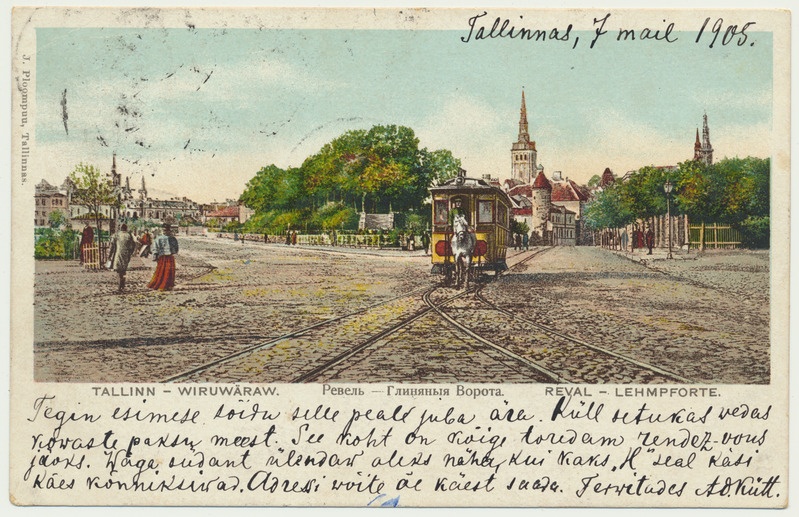 Tallinnas, 7 mail 1905.
J. Ploompuu, Tallinnas.
TALLINN – WIRUWÄRAW. Ревель — Глиняныя Ворота. REVAL – LEHMPFORTE.
Tegin esimese sõidu selle peale juba ära. Küll setukas vedas
kõwaste paksu meest. See koht on kõige toredam rendez-vous
jäoks. Wäga südant ülendaw oleks näha, kui kaks „H" seal käsi
käes kõnniksiwad. Adressi wõite õe käest saada. Terwitades AD. Kütt.